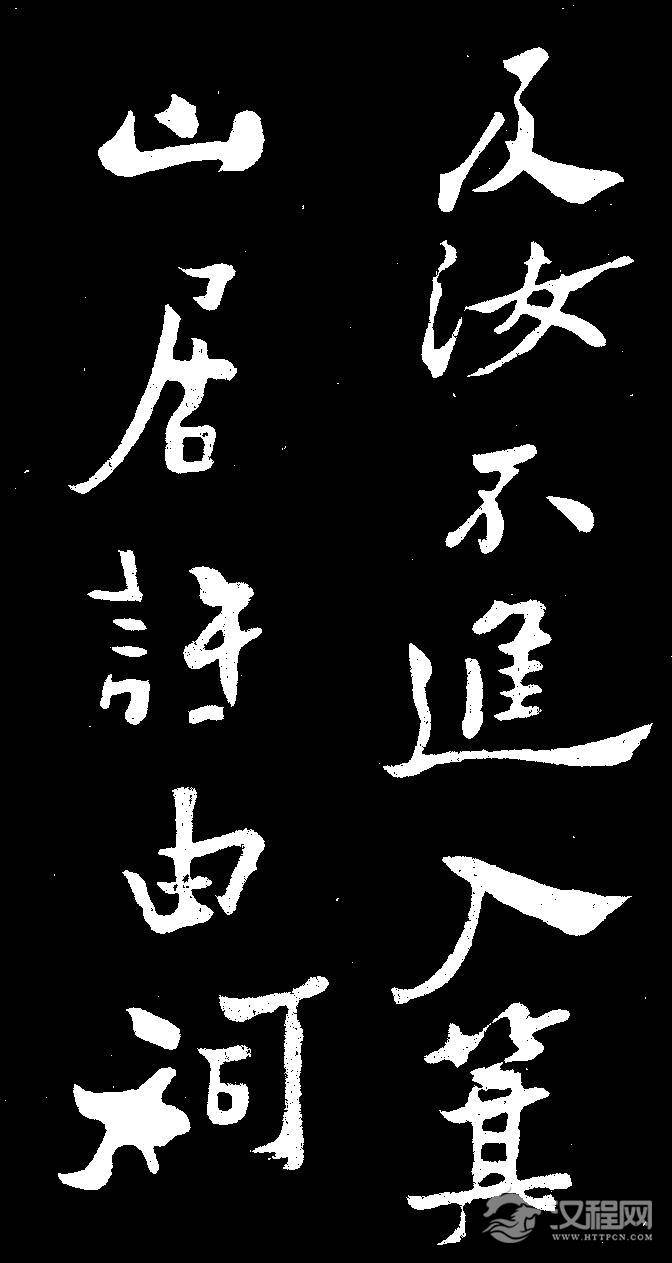 及汝不進入箕
山居許由祠
汉程网
WWW.HTTPCN.COM